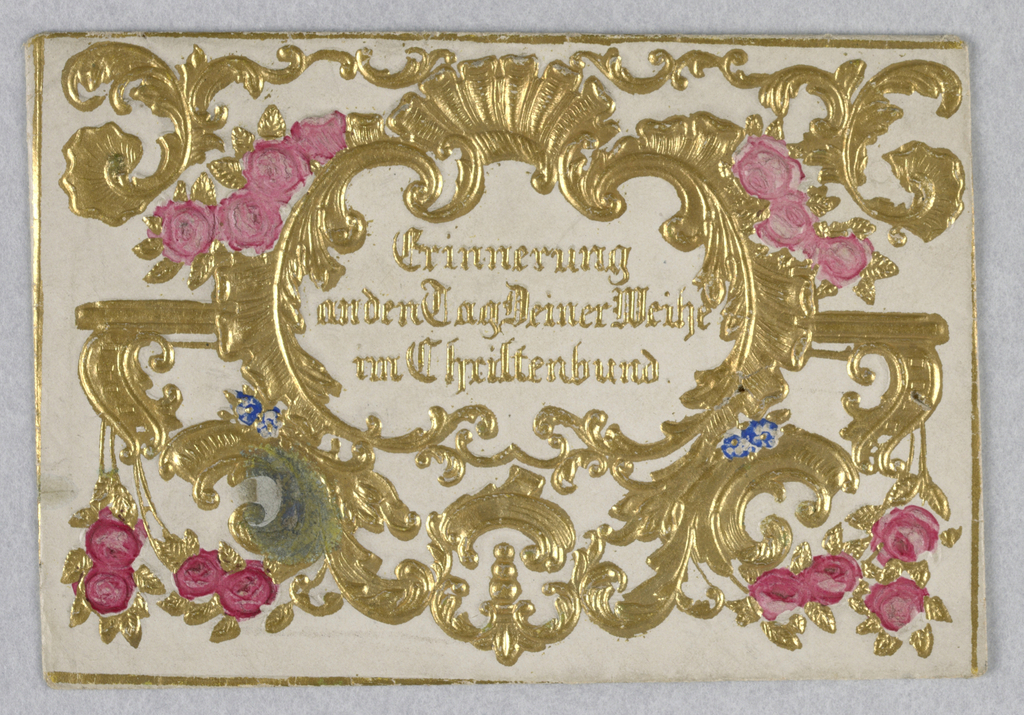 Erinnerung
an den Tag Deiner Weihe
im Christenbund.